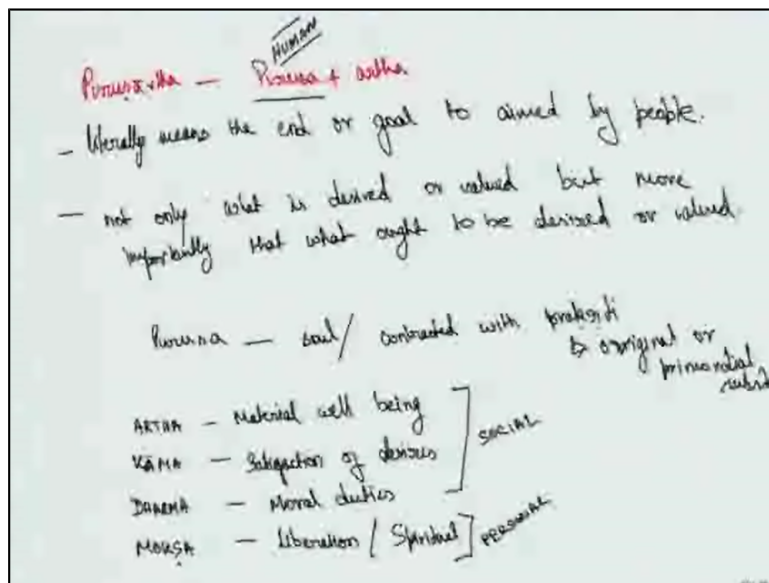 HUMAN
Purusartha — Purusa + artha
- literally means the end or goal to aimed by people.
- not only what is desired or valued but more
importantly that what ought to be desired or valued.
Purusa — soul/ contrasted with prakriti
↳ original or
primordial
ARTHA - Material well being
KĀMA - Satisfaction of desires
SOCIAL
DHARMA - Moral duties
MOKṢA - Liberation / Spiritual
PERSONAL